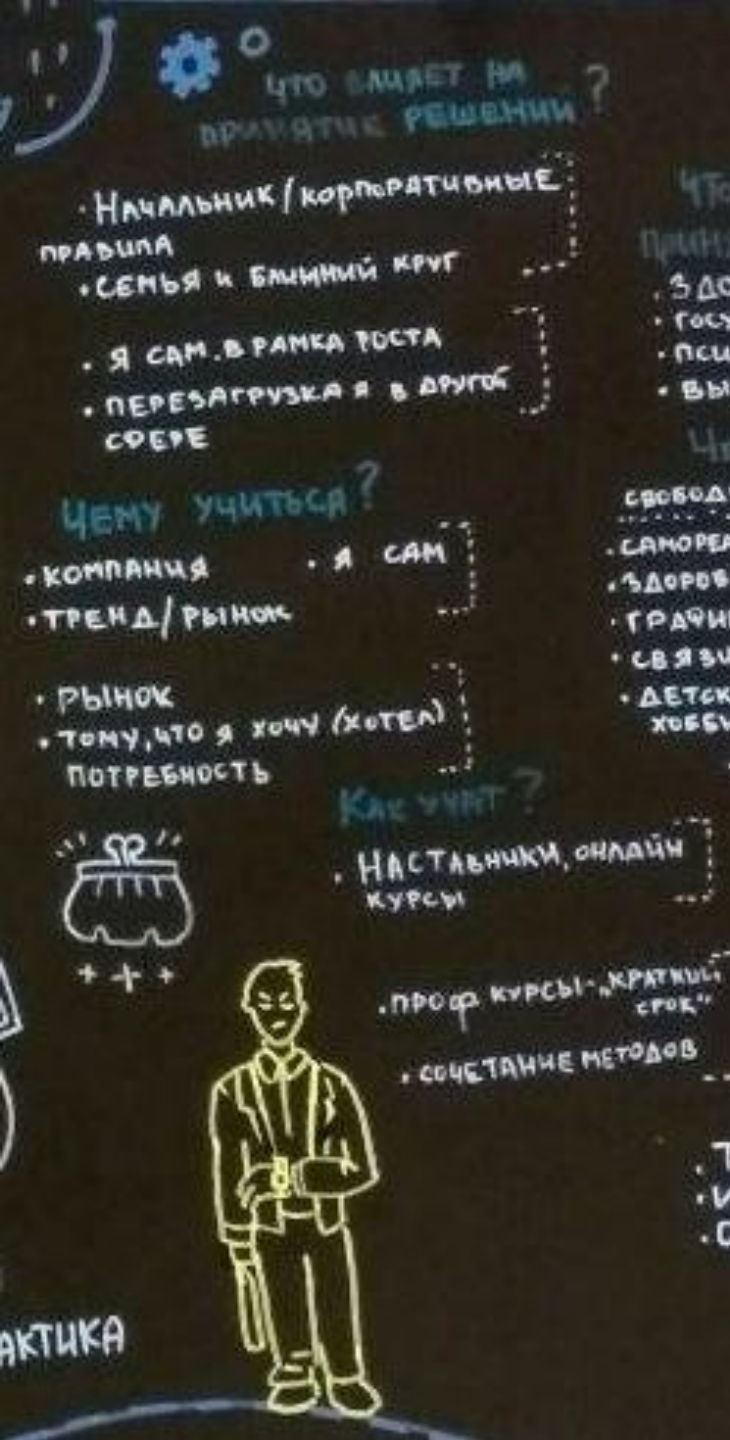 ЧТО ВЛИЯЕТ НА
ПРИНЯТИЕ РЕШЕНИИ?
· НАЧАЛЬНИК/КОРПОРАТИВНЫЕ
ПРАВИЛА
· СЕМЬЯ И БЛИЖНИЙ КРУГ
· Я САМ. В РАМКА РОСТА
· ПЕРЕЗАГРУЗКА Я В ДРУГОЙ
СФЕРЕ
ЧЕМУ УЧИТЬСЯ?
· КОМПАНИЯ · Я САМ
· ТРЕНД/РЫНОК
· РЫНОК
· ТОМУ, ЧТО Я ХОЧУ (ХОТЕЛ)
ПОТРЕБНОСТЬ
КАК УЧАТ?
· НАСТАВНИКИ, ОНЛАЙН
КУРСЫ
· ПРОФ КУРСЫ - „КРАТКИЙ
СРОК"
· СОЧЕТАНИЕ МЕТОДОВ
АКТИКА
ЧТО
ПРИН
· ЗДО
· ГОСУ
· ПСИ
· ВЫ
СВОБОД
· САМОРЕА
· ЗДОРОВ
· ГРАФИ
· СВЯЗИ
· ДЕТСК
ХОББИ